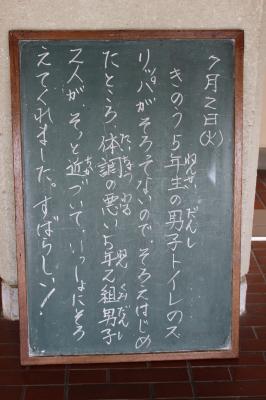 7月2日(火)
きのう5年生の男子トイレのス
リッパがそろってないので、そろえはじめ
たところ、体調の悪い5年2組男子
2人が、そっと近づいて、いっしょにそろ
えてくれました。すばらしい!